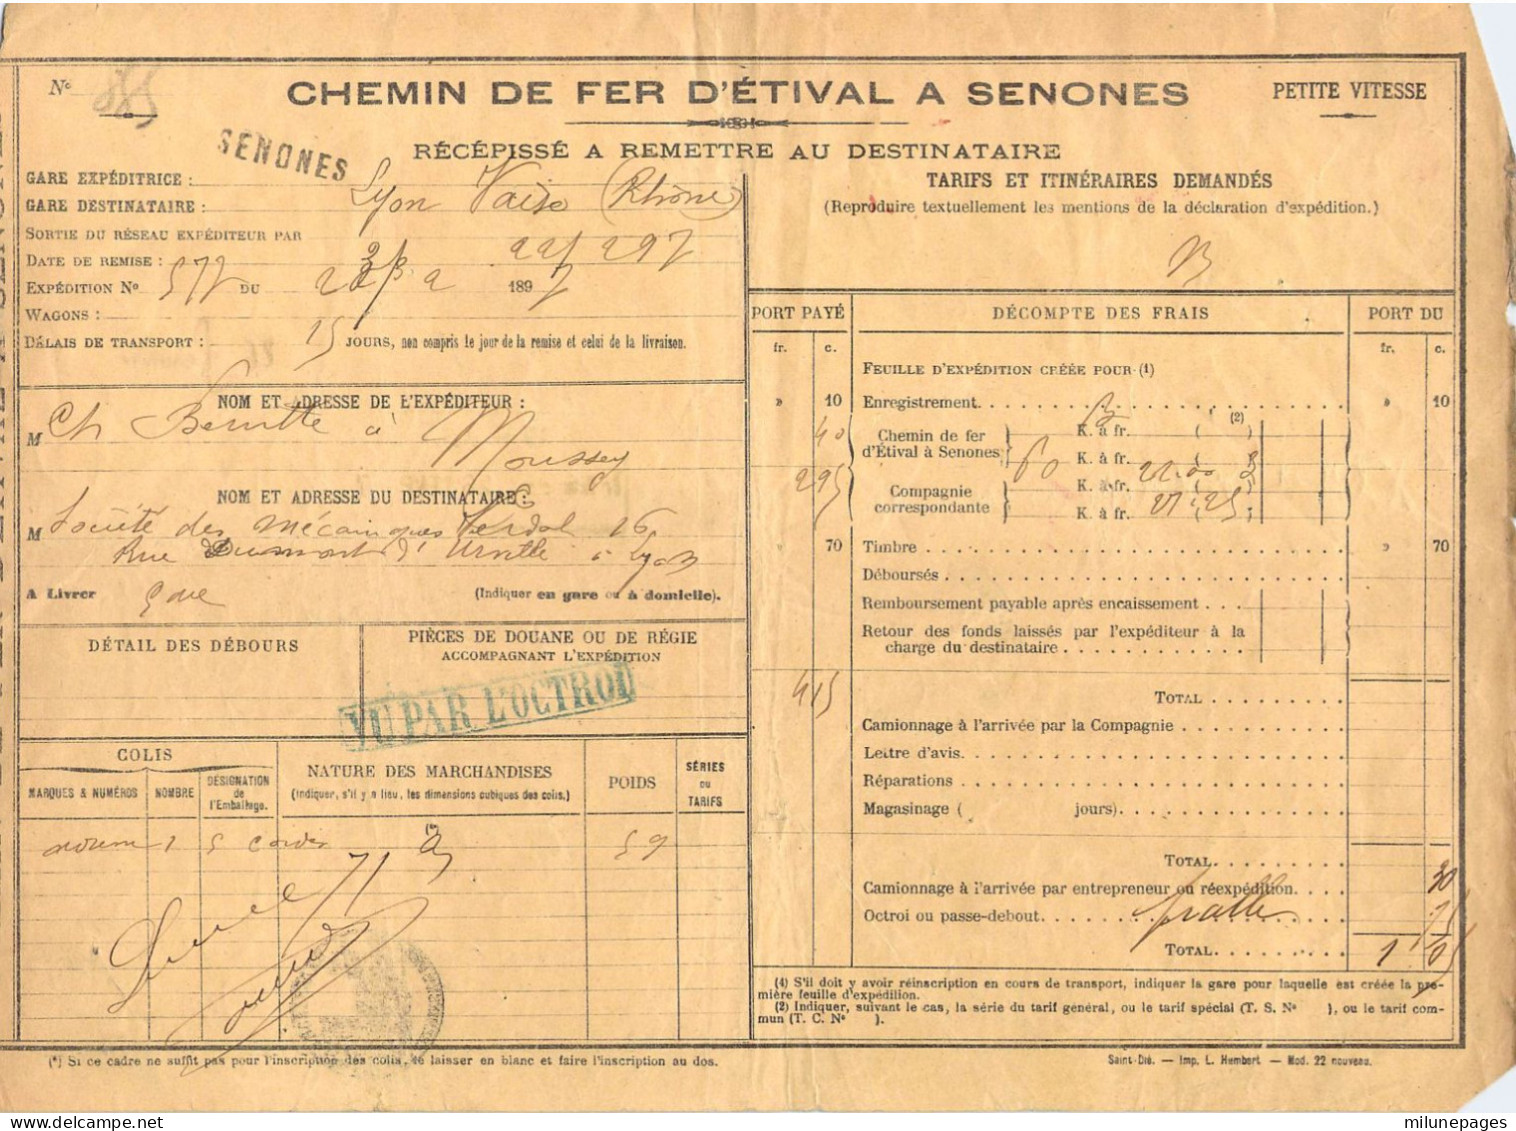 No 815
CHEMIN DE FER D'ÉTIVAL A SENONES
PETITE VITESSE
SENONES
RÉCÉPISSÉ A REMETTRE AU DESTINATAIRE
GARE EXPÉDITRICE :
GARE DESTINATAIRE : Lyon Vaise (Rhône)
SORTIE DU RÉSEAU EXPÉDITEUR PAR
DATE DE REMISE :
EXPÉDITION No 577 DU 189
WAGONS :
DÉLAIS DE TRANSPORT : 15 JOURS, non compris le jour de la remise et celui de la livraison.
NOM ET ADRESSE DE L'EXPÉDITEUR :
M Ch à Moussey
NOM ET ADRESSE DU DESTINATAIRE :
M Société des Mécaniques Verdol 16
Rue Dumont d'Urville à Lyon
A LIVRER gare (Indiquer en gare ou à domicile).
DÉTAIL DES DÉBOURS
PIÈCES DE DOUANE OU DE RÉGIE
ACCOMPAGNANT L'EXPÉDITION
VU PAR L'OCTROI
COLIS
MARQUES & NUMÉROS
NOMBRE
DÉSIGNATION de l'Emballage.
NATURE DES MARCHANDISES
(Indiquer, s'il y a lieu, les dimensions cubiques des colis.)
POIDS
SÉRIES ou TARIFS
(*)
1 5 59
(*) Si ce cadre ne suffit pas pour l'inscription des colis, le laisser en blanc et faire l'inscription au dos.
TARIFS ET ITINÉRAIRES DEMANDÉS
(Reproduire textuellement les mentions de la déclaration d'expédition.)
PORT PAYÉ
DÉCOMPTE DES FRAIS
PORT DU
fr. c. fr. c.
FEUILLE D'EXPÉDITION CRÉÉE POUR (1)
» 10 Enregistrement » 10
40 Chemin de fer d'Étival à Senones K. à fr. ( (2) )
K. à fr. ( )
295 Compagnie correspondante K. à fr. ( )
K. à fr. ( )
70 Timbre » 70
Déboursés
Remboursement payable après encaissement
Retour des fonds laissés par l'expéditeur à la
charge du destinataire
415 TOTAL
Camionnage à l'arrivée par la Compagnie
Lettre d'avis.
Réparations
Magasinage ( jours).
TOTAL.
Camionnage à l'arrivée par entrepreneur ou réexpédition. 30
Octroi ou passe-debout. 75
TOTAL. 1 05
(1) S'il doit y avoir réinscription en cours de transport, indiquer la gare pour laquelle est créée la pre-
mière feuille d'expédition.
(2) Indiquer, suivant le cas, la série du tarif général, ou le tarif spécial (T. S. No ), ou le tarif com-
mun (T. C. No ).
Saint-Dié. — Imp. L. Humbert — Mod. 22 nouveau.
milunepages